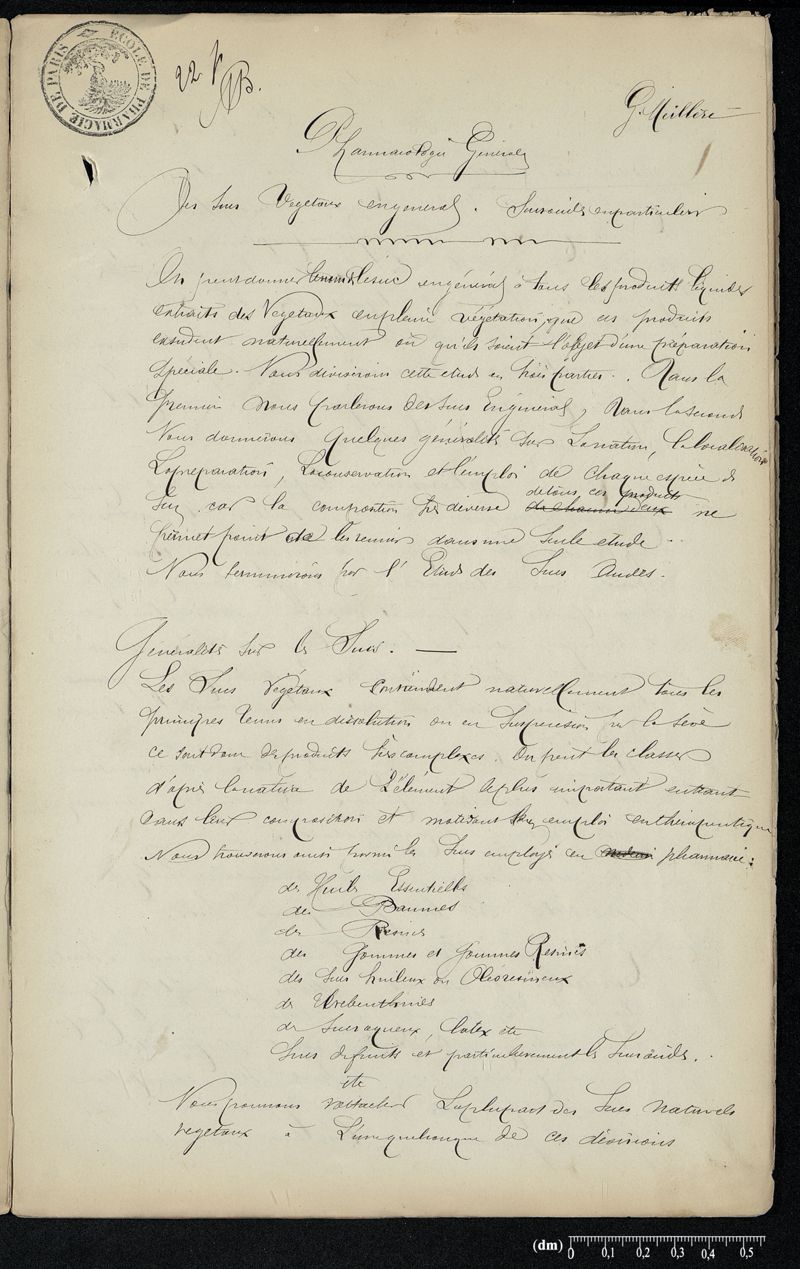 ECOLE DE PHARMACIE DE PARIS
G. Meillère
Pharmacologie Générale
1
Des Sucs Vegetaux en general. Sucs acides en particulier
On peut donner le nom de suc en général à tous les produits liquides
extraits des Vegetaux en pleine végétation, que ces produits
exsudent naturellement ou qu'ils soient l'objet d'une préparation
spéciale. Nous diviserons cette etude en trois parties. Dans la
premiere nous parlerons des sucs En général, Dans la seconde
Nous donnerons Quelques généralités sur La nature, la localisation
La préparation, La conservation et l'emploi de chaque espèce de
Suc car la composition très diverse de tous ces produits ne
permet point de les reunir dans une seule etude.
Nous terminerons par l'Etude des Sucs Acides.
Généralités sur les Sucs. —
Les Sucs Végétaux contiennent naturellement tous les
principes tenus en dissolution ou en Suspension par la sève
ce sont donc des produits très complexes. On peut les classer
d'après la nature de l'élément le plus important entrant
dans leur composition et motivant leur emploi en thérapeutique
Nous trouverons ainsi parmi les Sucs employés en pharmacie:
des Huiles Essentielles
des Baumes
des Resines
des Gommes et Gommes Resines
des Sucs huileux ou Oléorésineux
des Térébenthines
des Sucs aqueux, latex etc
Sucs de fruits et particulièrement les Sucs acides.
etc
Nous pourrons rattacher La plupart des Sucs naturels
vegetaux à L'une quelconque de ces divisions
(dm) 0 0,1 0,2 0,3 0,4 0,5